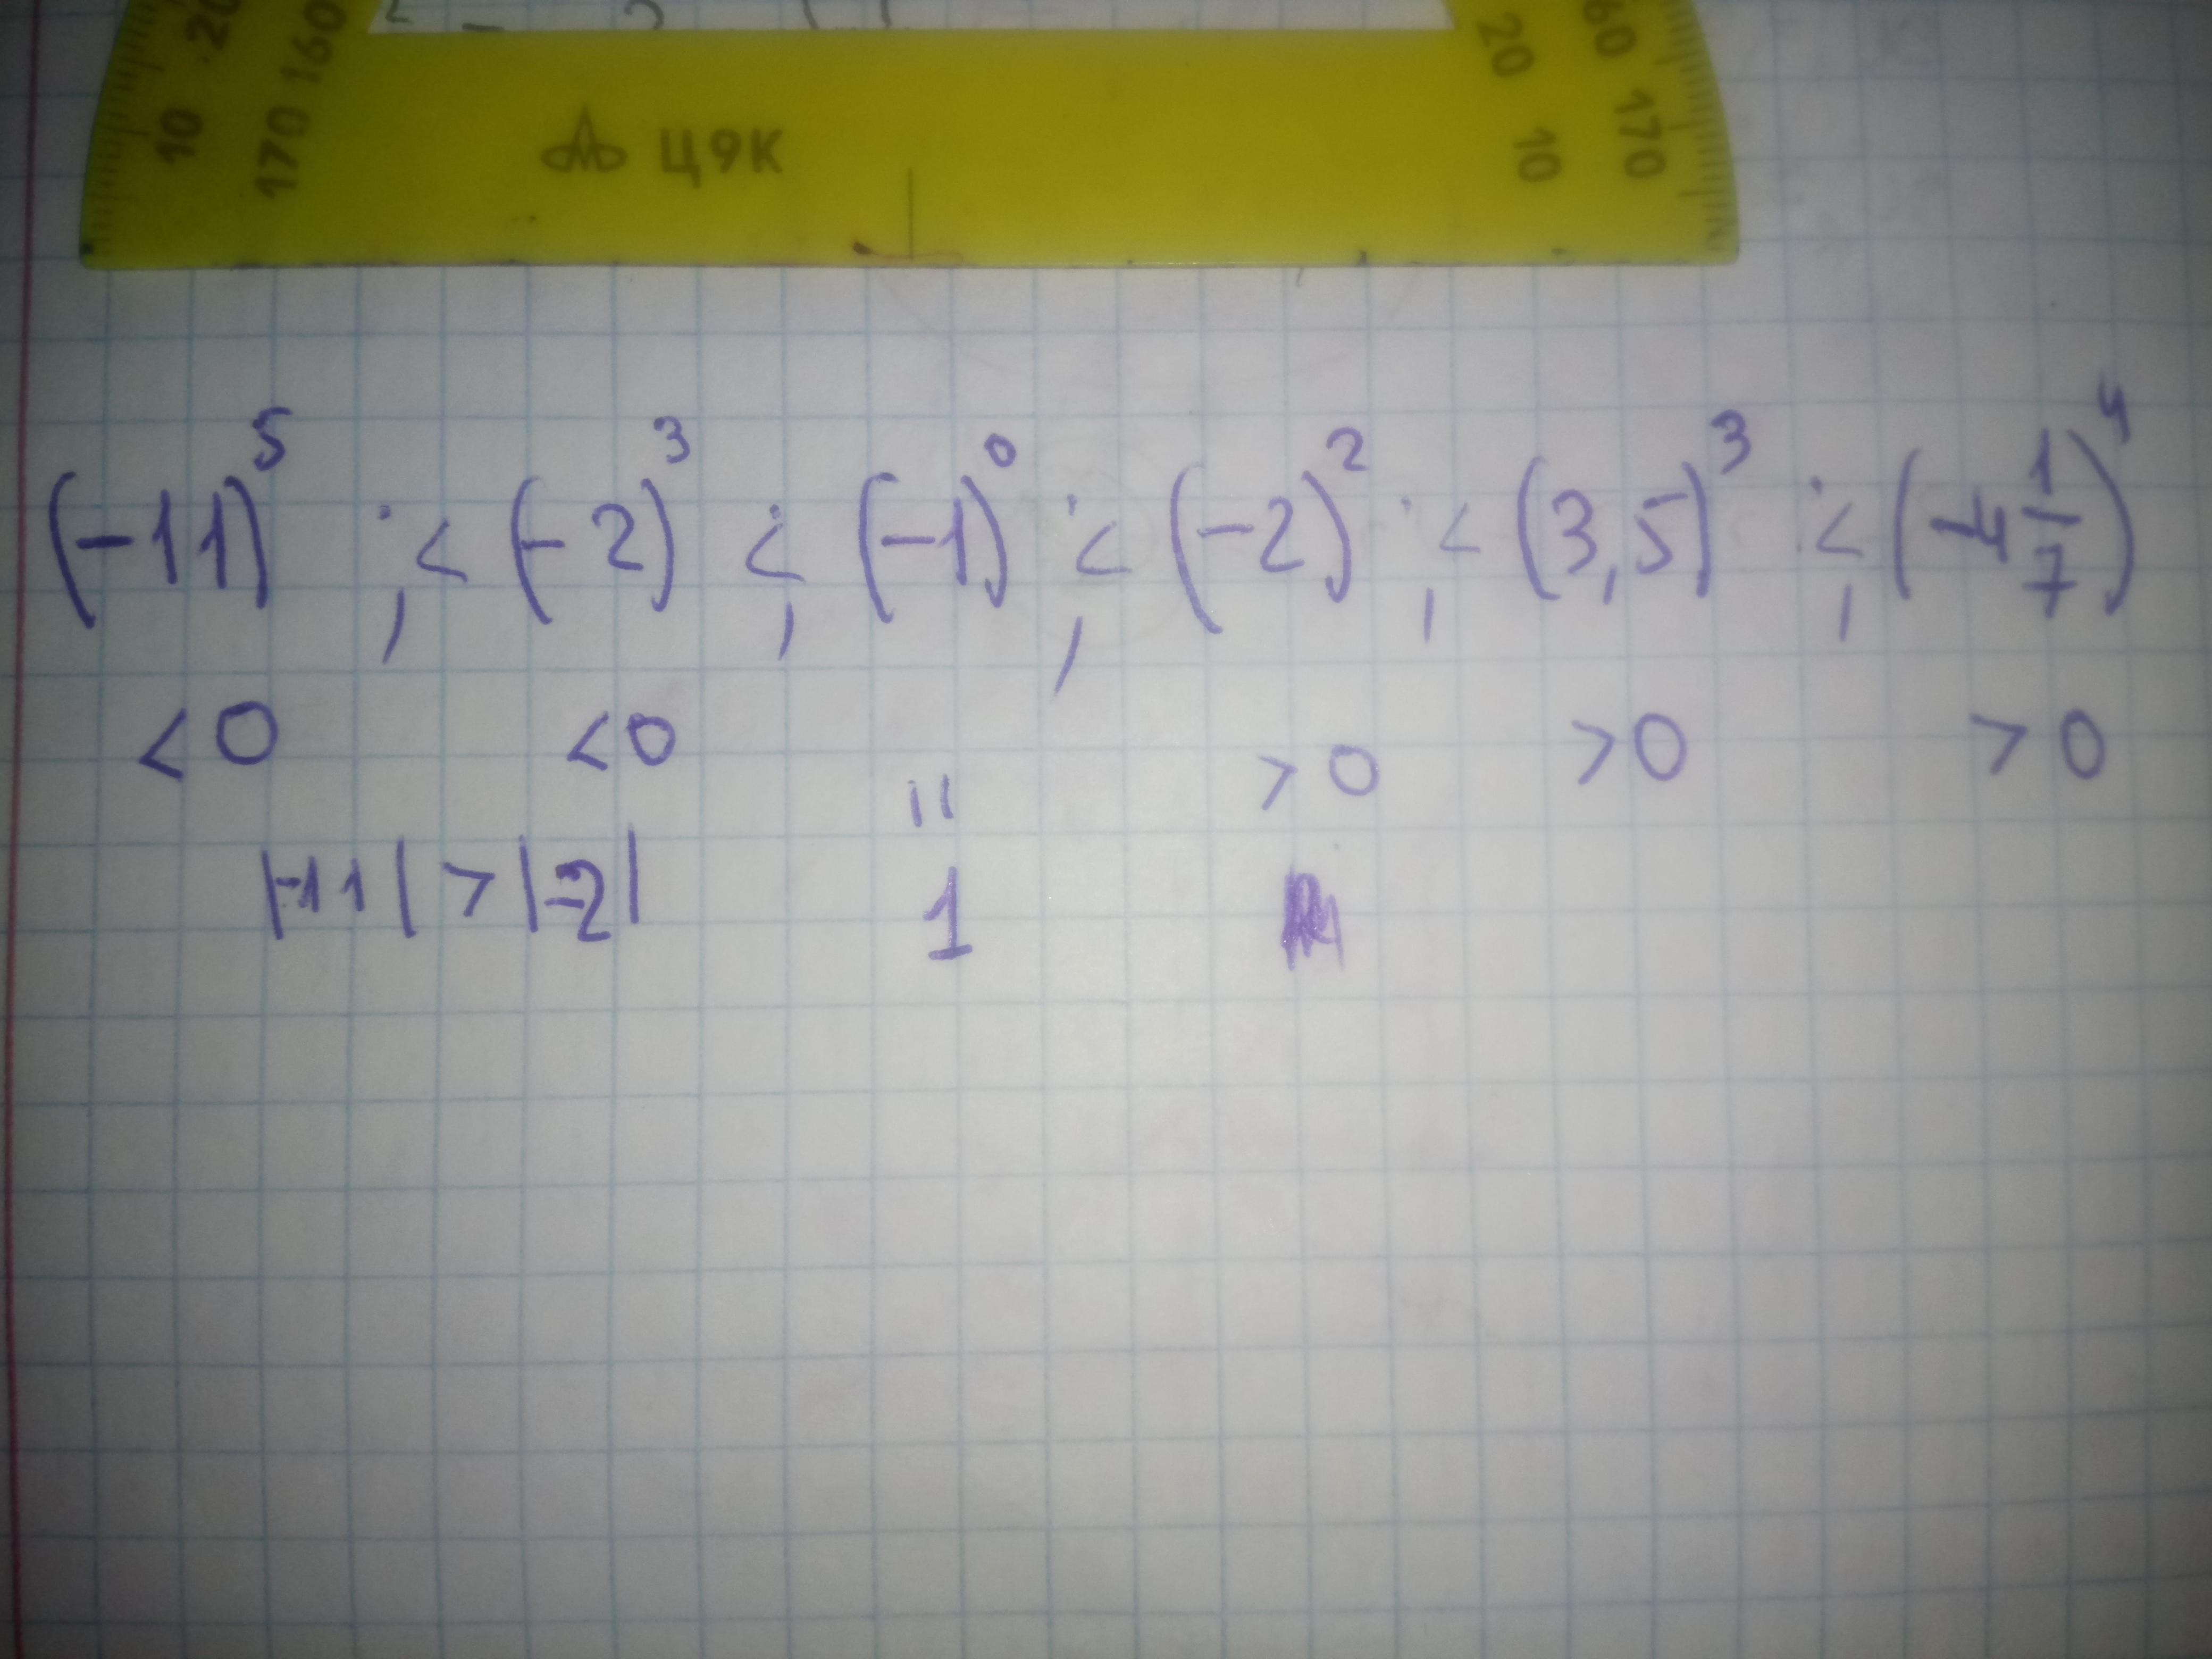 20 160 20 160
10 170 ЦЯК 10 170
(-11)⁵ ;< (-2)³ ;< (-1)⁰ ;< (-2)² ;< (3,5)³ ;< (-4 1/7)⁴
<0 <0 >0 >0 >0
"
|-11| > |-2| 1